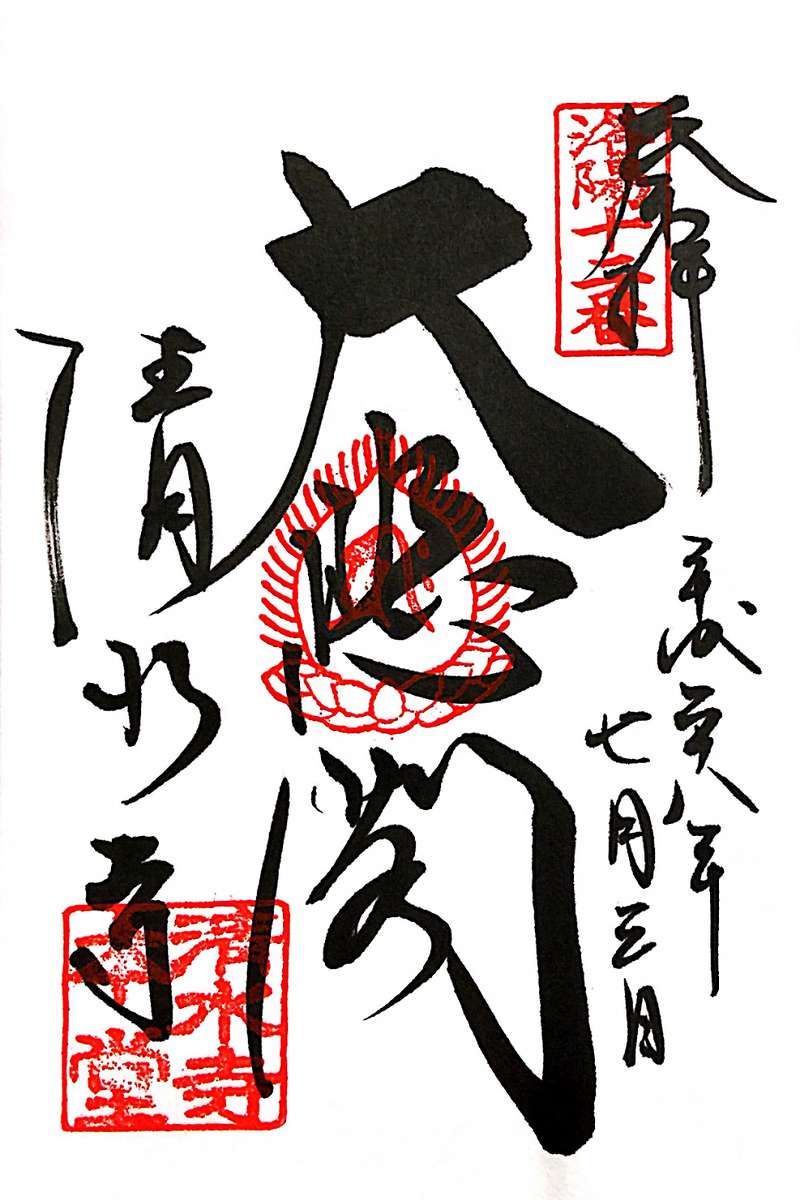 奉拝
洛陽十二番
平成二十八年
七月三日
大悲閣
清水寺
清水寺
本堂